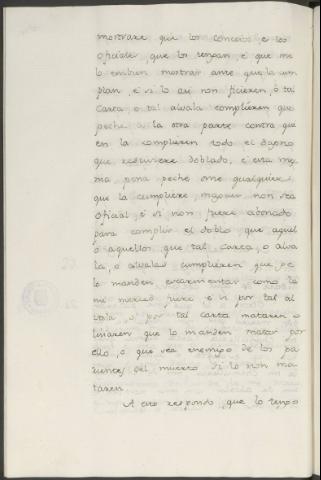 mostrare que los concejos e los
oficiales, que los tengan, e que me
lo embien mostrar ante que la cum
plan, e si lo asi non ficieren, ó tal
Carta, o tal alvala complieren que
peche à la otra parte contra qui
en la complieren todo el dapno
que resciviere doblado, e esta mis
ma pena peche ome qualquiera
que la cumpliere, maguer non sea
oficial, e si non fuere abonado
para complir el doblo que aquel
o aquellos que tal Carta, o alva
la, o alvalas cumplieren que yo
lo mande escarmentar como la
mi merced fuere e si por tal al
vala, o por tal carta mataren o
lisiaren que lo manden matar por
ello, o que sea enemigo de los pa
rientes del muerto si lo non ma
taren
A esto respondo, que lo tengo